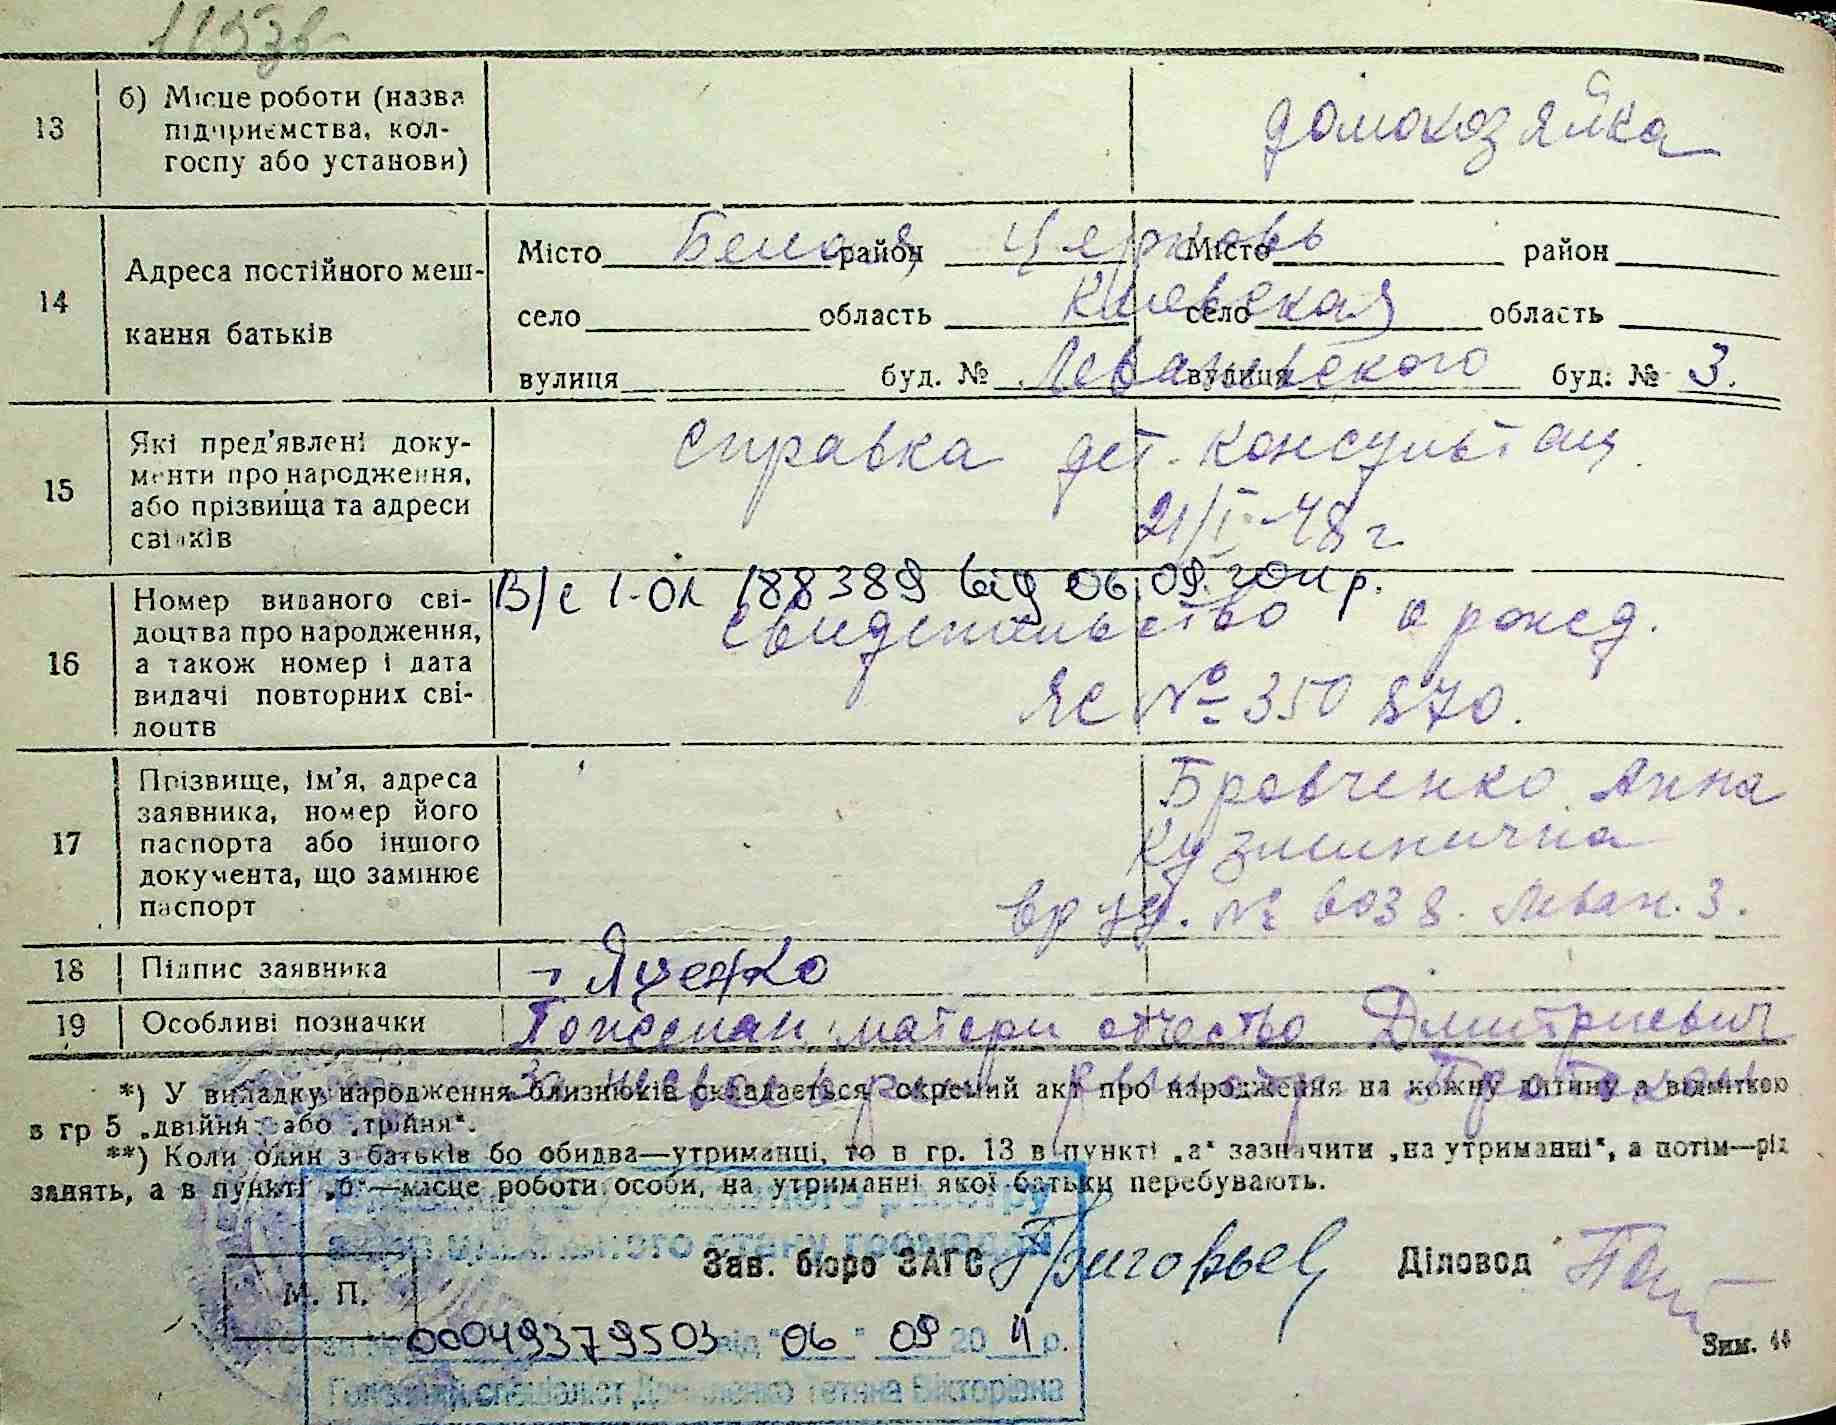 13
б) Місце роботи (назва
підприємства, кол-
госпу або установи)
домохозяйка
14
Адреса постійного меш-
кання батьків
Місто Белая район Церковь Місто район
село область Киевская село область
вулиця буд. № Леваневского вулиця буд. № 3.
15
Які пред'явлені доку-
менти про народження,
або прізвища та адреси
свідків
справка дет. консультац.
21/I-48 г
16
Номер виданого сві-
доцтва про народження,
а також номер і дата
видачі повторних сві-
доцтв
В/с 1-ОЛ 188389 від 06.09.2011 р.
свидетельство о рожд.
ЯС № 350870.
17
Прізвище, ім'я, адреса
заявника, номер його
паспорта або іншого
документа, що замінює
паспорт
Бровченко Анна
Кузминична
вр уд. № 6038. Леван. 3.
18
Підпис заявника
Яценко
19
Особливі позначки
матери отчество Дмитриевич
*) У випадку народження близнюків складається окремий акт про народження на кожну дитину з відміткою
в гр 5 „двійня" або „трійня".
**) Коли один з батьків бо обидва—утриманці, то в гр. 13 в пункті „а" зазначити „на утриманні", а потім—рід
занять, а в пункті „б"—місце роботи особи, на утриманні якої батьки перебувають.
реєстру
стану громадян
Зав. бюро ЗАГС Григорьев Діловод
М. П.
00049379503 від "06" 09 2011 р.
Головний спеціаліст Тетяна Вікторівна
Зим. 44